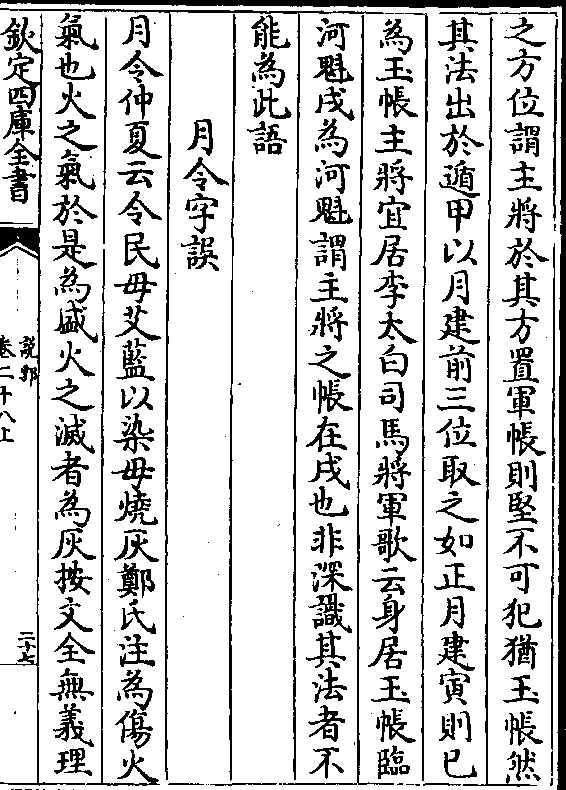 之方位謂主將於其方置軍帳則堅不可犯猶玉帳然
其法出於遁甲以月建前三位取之如正月建寅則巳
為玉帳主將宜居李太白司馬將軍歌云身居玉帳臨
河魁戌為河魁謂主將之帳在戌也非深識其法者不
能為此語
月令字誤
月令仲夏云令民毋艾藍以染毋燒灰鄭氏注為傷火
氣也火之氣於是為盛火之滅者為灰按文全無義理
欽定四庫全書
說郛
卷二十八上
二十七